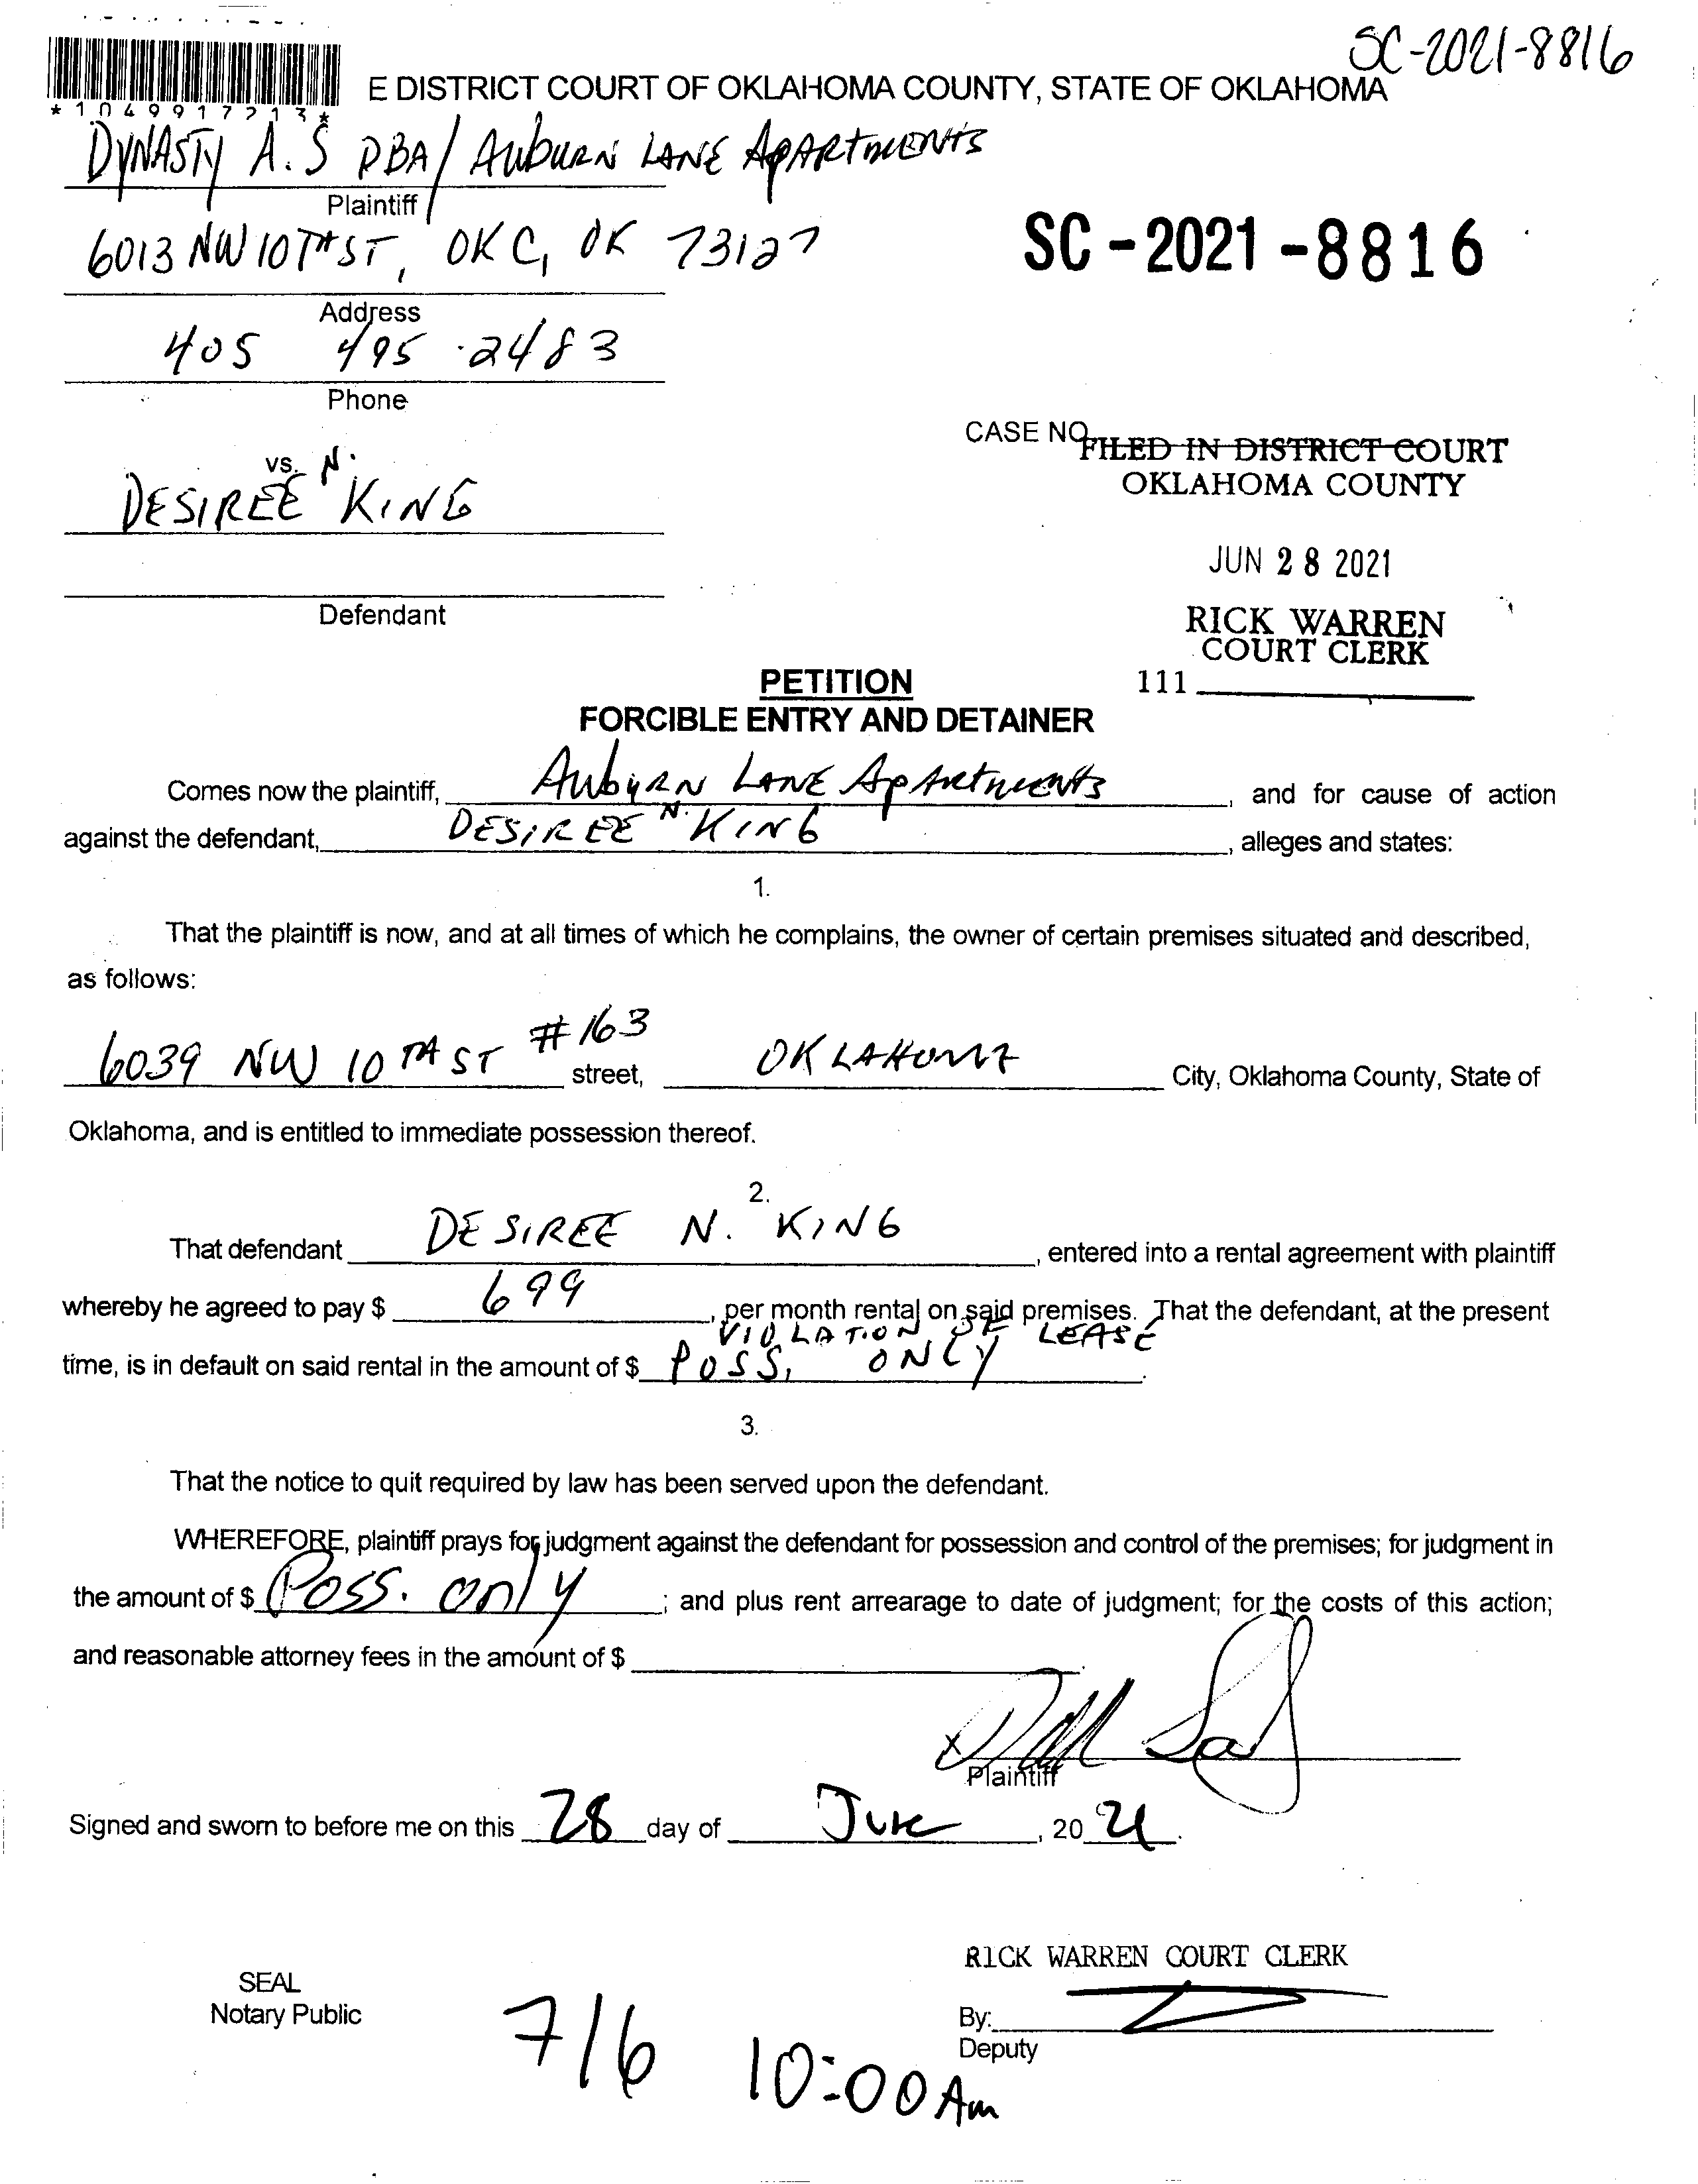 SC-2021-8816
E DISTRICT COURT OF OKLAHOMA COUNTY, STATE OF OKLAHOMA
*1049917213*
DYNASTY A.S DBA/ AUBURN LANE APARTMENTS
Plaintiff
6013 NW 10TH ST, OKC, OK 73127
SC-2021-8816
Address
405 495-2483
Phone
CASE NO.
FILED IN DISTRICT COURT
OKLAHOMA COUNTY
vs.
DESIREE N. KING
JUN 28 2021
Defendant
RICK WARREN
COURT CLERK
111
PETITION
FORCIBLE ENTRY AND DETAINER
Comes now the plaintiff, AUBURN LANE APARTMENTS, and for cause of action
against the defendant, DESIREE N. KING, alleges and states:
1.
That the plaintiff is now, and at all times of which he complains, the owner of certain premises situated and described,
as follows:
6039 NW 10TH ST #163 street, OKLAHOMA City, Oklahoma County, State of
Oklahoma, and is entitled to immediate possession thereof.
2.
That defendant DESIREE N. KING, entered into a rental agreement with plaintiff
whereby he agreed to pay $ 699, per month rental on said premises. That the defendant, at the present
VIOLATION OF LEASE
time, is in default on said rental in the amount of $ POSS, ONLY.
3.
That the notice to quit required by law has been served upon the defendant.
WHEREFORE, plaintiff prays for judgment against the defendant for possession and control of the premises; for judgment in
the amount of $ Poss. only; and plus rent arrearage to date of judgment; for the costs of this action;
and reasonable attorney fees in the amount of $
X
Plaintiff
Signed and sworn to before me on this 28 day of June, 20 21.
RICK WARREN COURT CLERK
SEAL
Notary Public
By:
Deputy
7/6 10:00 Am